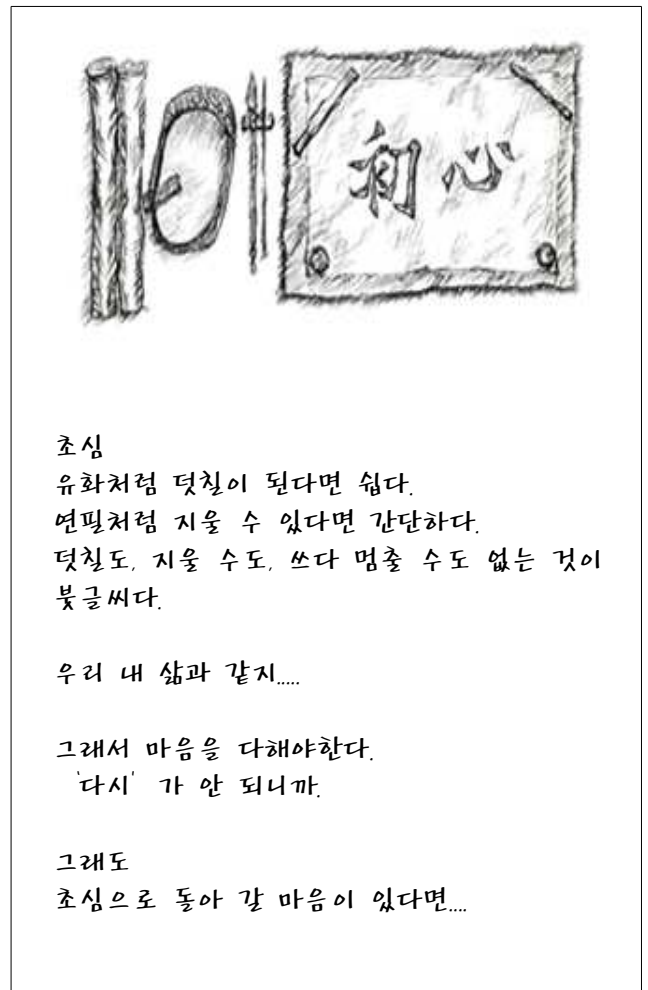 初心
초심
유화처럼 덧칠이 된다면 쉽다.
연필처럼 지울 수 있다면 간단하다.
덧칠도, 지울 수도, 쓰다 멈출 수도 없는 것이
붓글씨다.
우리 내 삶과 같지.....
그래서 마음을 다해야한다.
'다시' 가 안 되니까.
그래도
초심으로 돌아 갈 마음이 있다면....